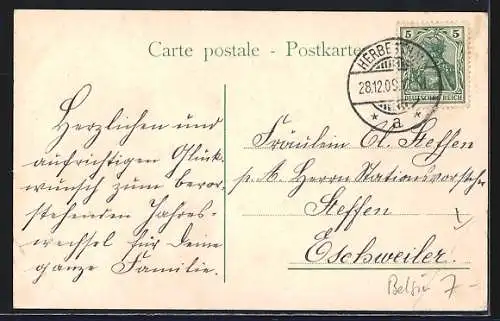 Carte postale - Postkarte
5 5
DEUTSCHES REICH
28.12.09
* a *
Herzlichen und
aufrichtigen Glück-
wunsch zum bevor-
stehenden Jahres-
wechsel für Deine
ganze Familie.
Fräulein A. Steffen
p. A. Herrn Stationsvorsteher
Steffen
Eschweiler.
7-